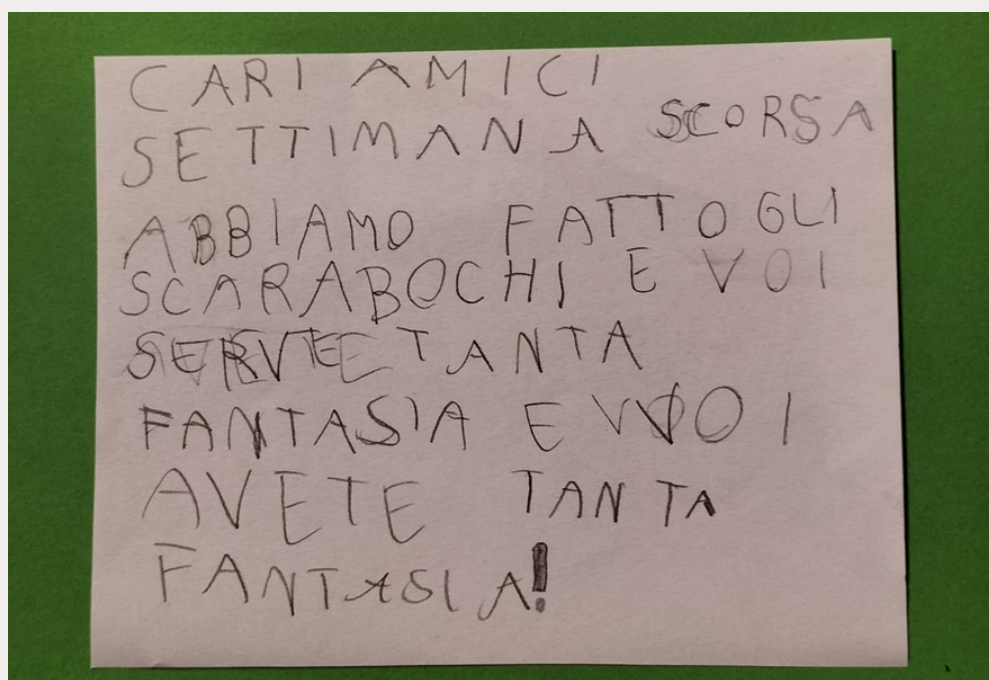 CARI AMICI
SETTIMANA SCORSA
ABBIAMO FATTO GLI
SCARABOCHI E VOI
SERVE TANTA
FANTASIA E VOI
AVETE TANTA
FANTASIA!